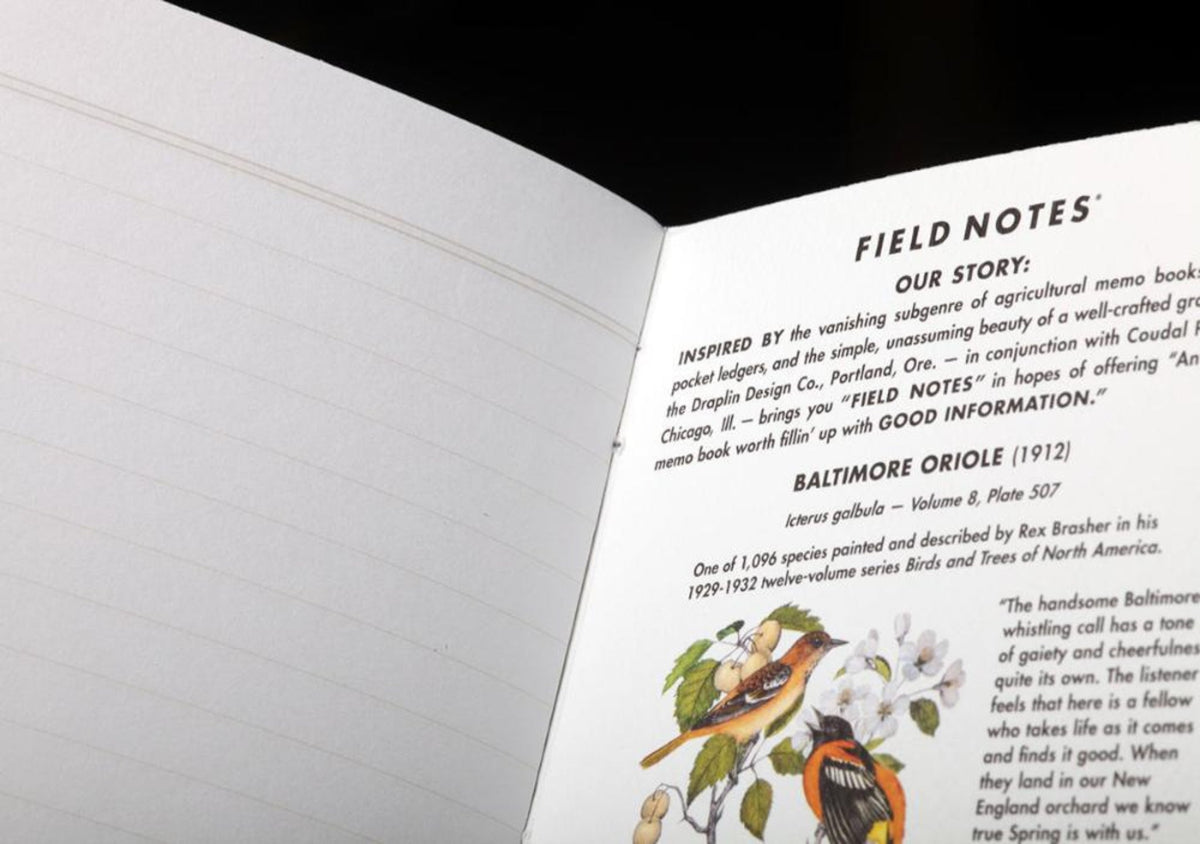 FIELD NOTES
OUR STORY:
INSPIRED BY the vanishing subgenre of agricultural memo books
pocket ledgers, and the simple, unassuming beauty of a well-crafted
the Draplin Design Co., Portland, Ore. — in conjunction with Coudal
Chicago, Ill. — brings you “FIELD NOTES” in hopes of offering “An
memo book worth fillin’ up with GOOD INFORMATION.”
BALTIMORE ORIOLE (1912)
Icterus galbula — Volume 8, Plate 507
One of 1,096 species painted and described by Rex Brasher in his
1929-1932 twelve-volume series Birds and Trees of North America.
“The handsome Baltimore
whistling call has a tone
of gaiety and cheerfulnes
quite its own. The listener
feels that here is a fellow
who takes life as it comes
and finds it good. When
they land in our New
England orchard we know
true Spring is with us.”